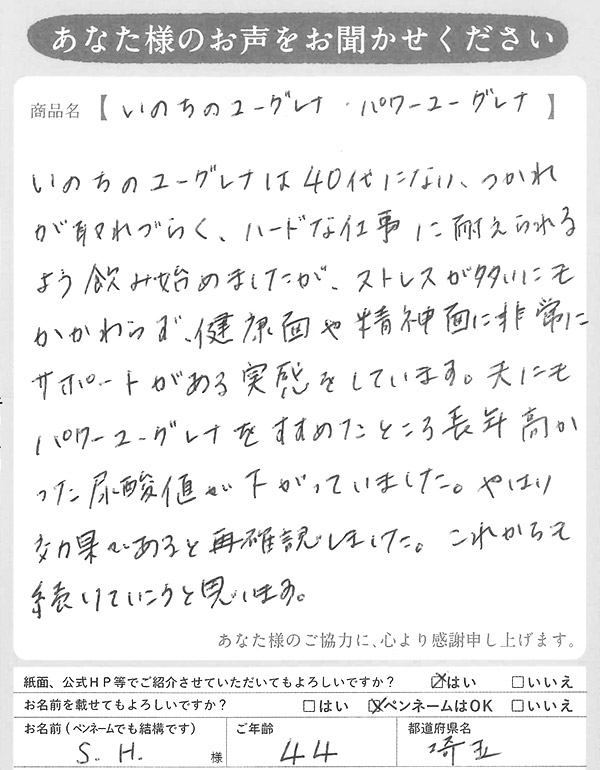 あなた様のお声をお聞かせください
商品名【いのちのユーグレナ・パワーユーグレナ】
いのちのユーグレナは40代になり、つかれ
が取れづらく、ハードな仕事に耐えられる
よう飲み始めましたが、ストレスが多いにも
かかわらず、健康面や精神面に非常に
サポートがある実感をしています。夫にも
パワーユーグレナをすすめたところ長年高か
った尿酸値が下がっていました。やはり
効果であると再確認しました。これからも
続けていこうと思います。
あなた様のご協力に、心より感謝申し上げます。
紙面、公式HP等でご紹介させていただいてもよろしいですか? ☒はい □いいえ
お名前を載せてもよろしいですか? □はい ☒ペンネームはOK □いいえ
お名前(ペンネームでも結構です) ご年齢 都道府県名
S.H. 様 44 埼玉